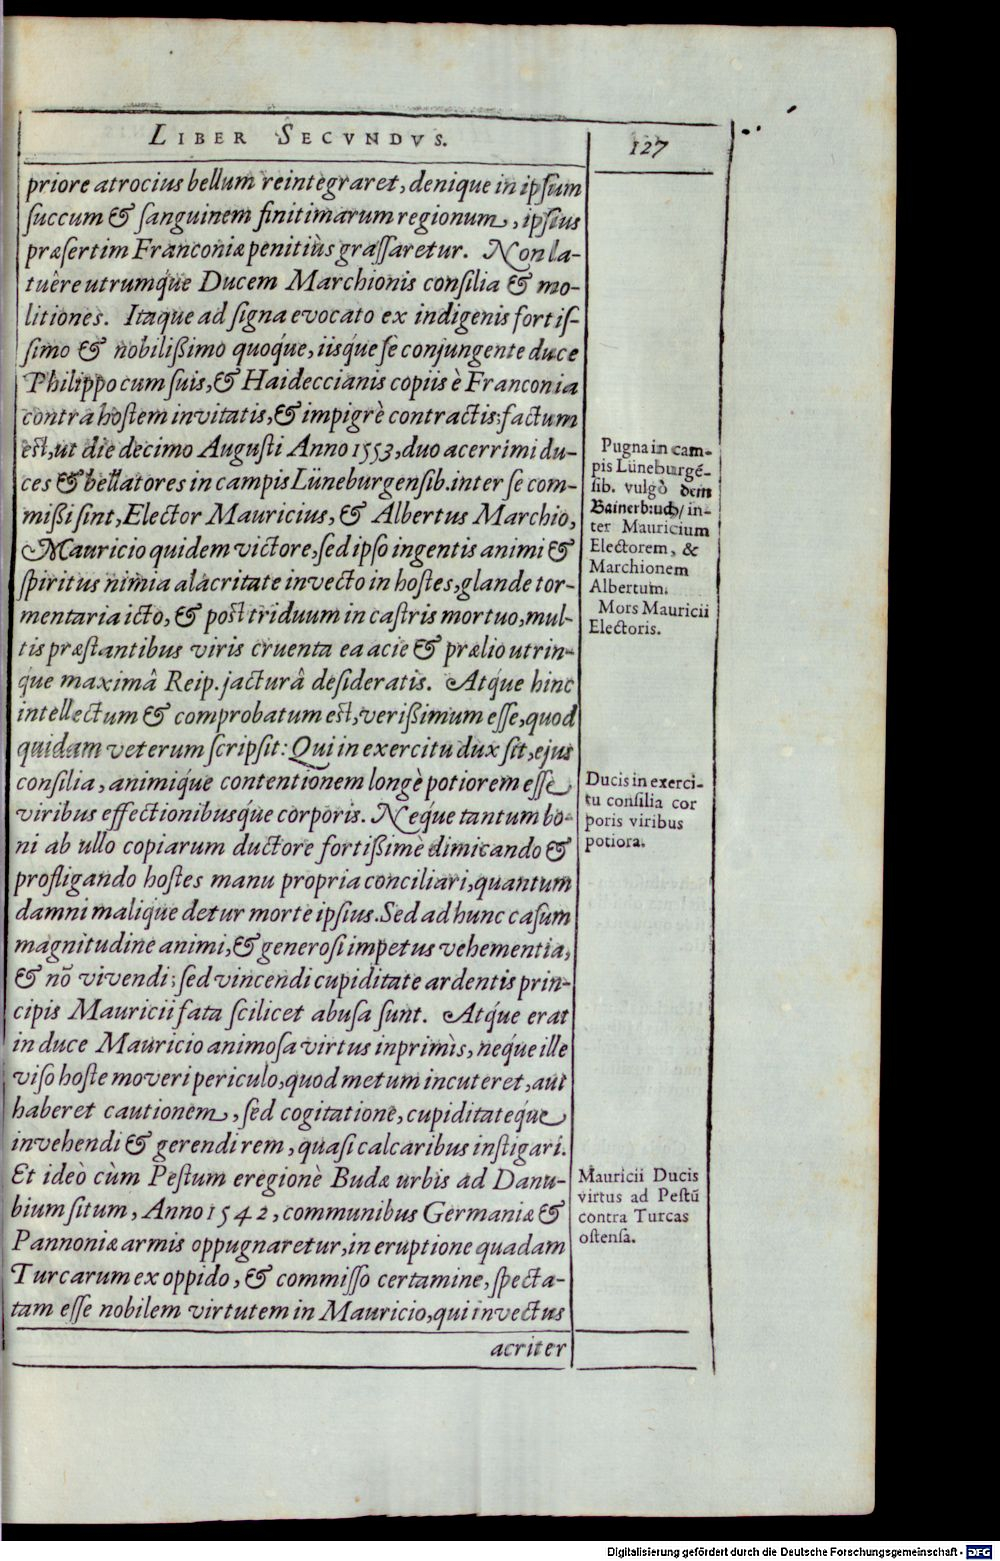 LIBER SECVNDVS.
127
priore atrocius bellum reintegraret, denique in ipsum
succum & sanguinem finitimarum regionum, ipsius
præsertim Franconiæ penitiùs grassaretur. Non la-
tuêre utrumq́ue Ducem Marchionis consilia & mo-
litiones. Itaque ad signa evocato ex indigenis fortis-
simo & nobilißimo quoque, iisq́ue se conjungente duce
Philippo cum suis, & Haideccianis copiis è Franconia
contra hostem invitatis, & impigrè contractis; factum
est, ut die decimo Augusti Anno 1553, duo acerrimi du-
ces & bellatores in campis Lüneburgensib. inter se com-
mißi sint, Elector Mauricius, & Albertus Marchio,
Mauricio quidem victore, sed ipso ingentis animi &
spiritus nimia alacritate invecto in hostes, glande tor-
mentaria icto, & post triduum in castris mortuo, mul-
tis præstantibus viris cruenta ea acie & prælio utrin-
que maximâ Reip. jacturâ desideratis. Atq́ue hinc
intellectum & comprobatum est, verißimum esse, quod
quidam veterum scripsit: Qui in exercitu dux sit, ejus
consilia, animiq́ue contentionem longè potiorem esse
viribus effectionibusq́ue corporis. Neq́ue tantum bo-
ni ab ullo copiarum ductore fortißimè dimicando &
profligando hostes manu propria conciliari, quantum
damni malique detur morte ipsius. Sed ad hunc casum
magnitudine animi, & generosi impetus vehementia,
& nō vivendi; sed vincendi cupiditate ardentis prin-
cipis Mauricii fata scilicet abusa sunt. Atq́ue erat
in duce Mauricio animosa virtus inprimìs, neq́ue ille
viso hoste moveri periculo, quod metum incuteret, aut
haberet cautionem, sed cogitatione, cupiditateq́ue
invehendi & gerendi rem, quasi calcaribus instigari.
Et ideò cùm Pestum eregionè Budæ urbis ad Danu-
bium situm, Anno 1542, communibus Germaniæ &
Pannoniæ armis oppugnaretur, in eruptione quadam
Turcarum ex oppido, & commisso certamine, specta-
tam esse nobilem virtutem in Mauricio, qui invectus
acriter
Pugna in cam-
pis Lüneburgē-
sib. vulgò dem
Bainerbuch/ in-
ter Mauricium
Electorem, &
Marchionem
Albertum.
Mors Mauricii
Electoris.
Ducis in exerci-
tu consilia cor
poris viribus
potiora.
Mauricii Ducis
virtus ad Pestū
contra Turcas
ostensa.
Digitalisierung gefördert durch die Deutsche Forschungsgemeinschaft - DFG